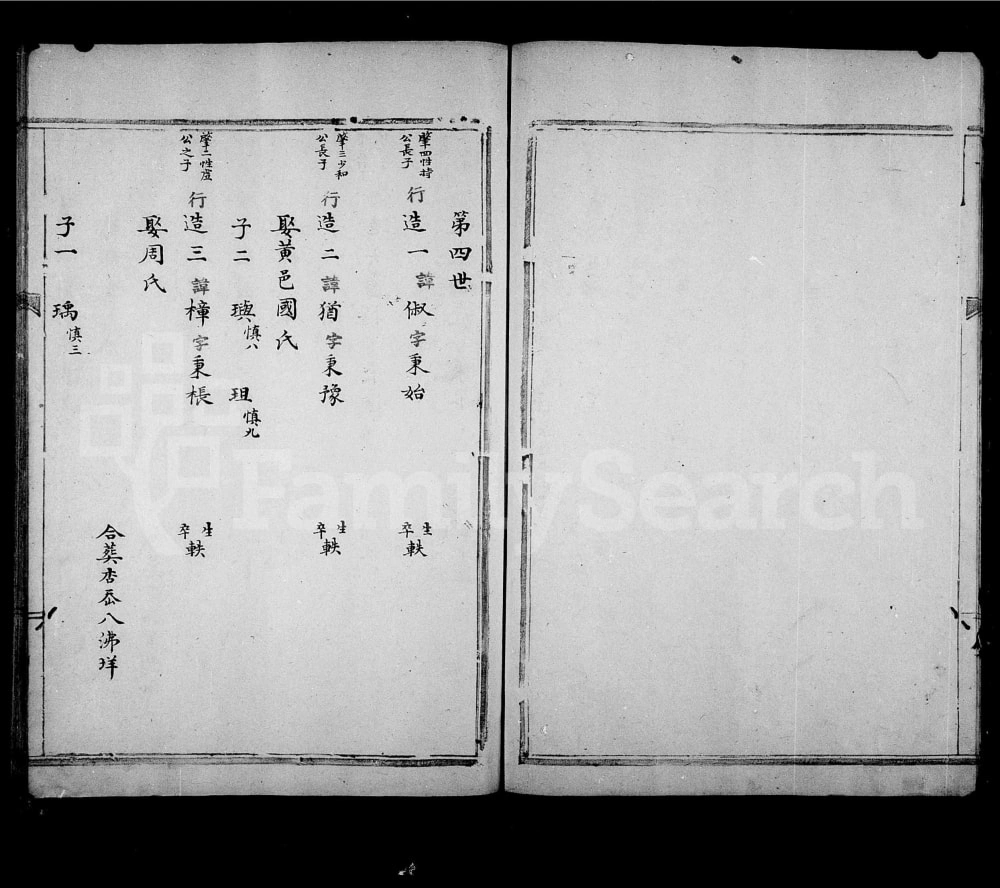 第四世
肇四性持
公長子
行造一諱俶字秉始
生
卒
軼
肇三少和
公長子
行造二諱猶字秉豫
生
卒
軼
娶黃邑國氏
子二 璵慎八 珇慎九
肇二性度
公之子
行造三諱樟字秉棖
生
卒
軼
娶周氏
合葬杏岙八沸垟
子一 瑀慎三
FamilySearch